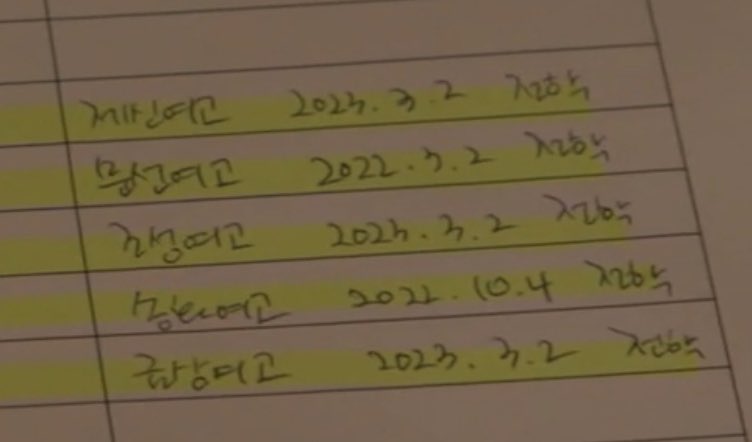 제신여고 2023.3.2 전학
문선여고 2022.3.2 전학
조성여고 2023.3.2 전학
2022.10.4 전학
금강여고 2023.3.2 전학